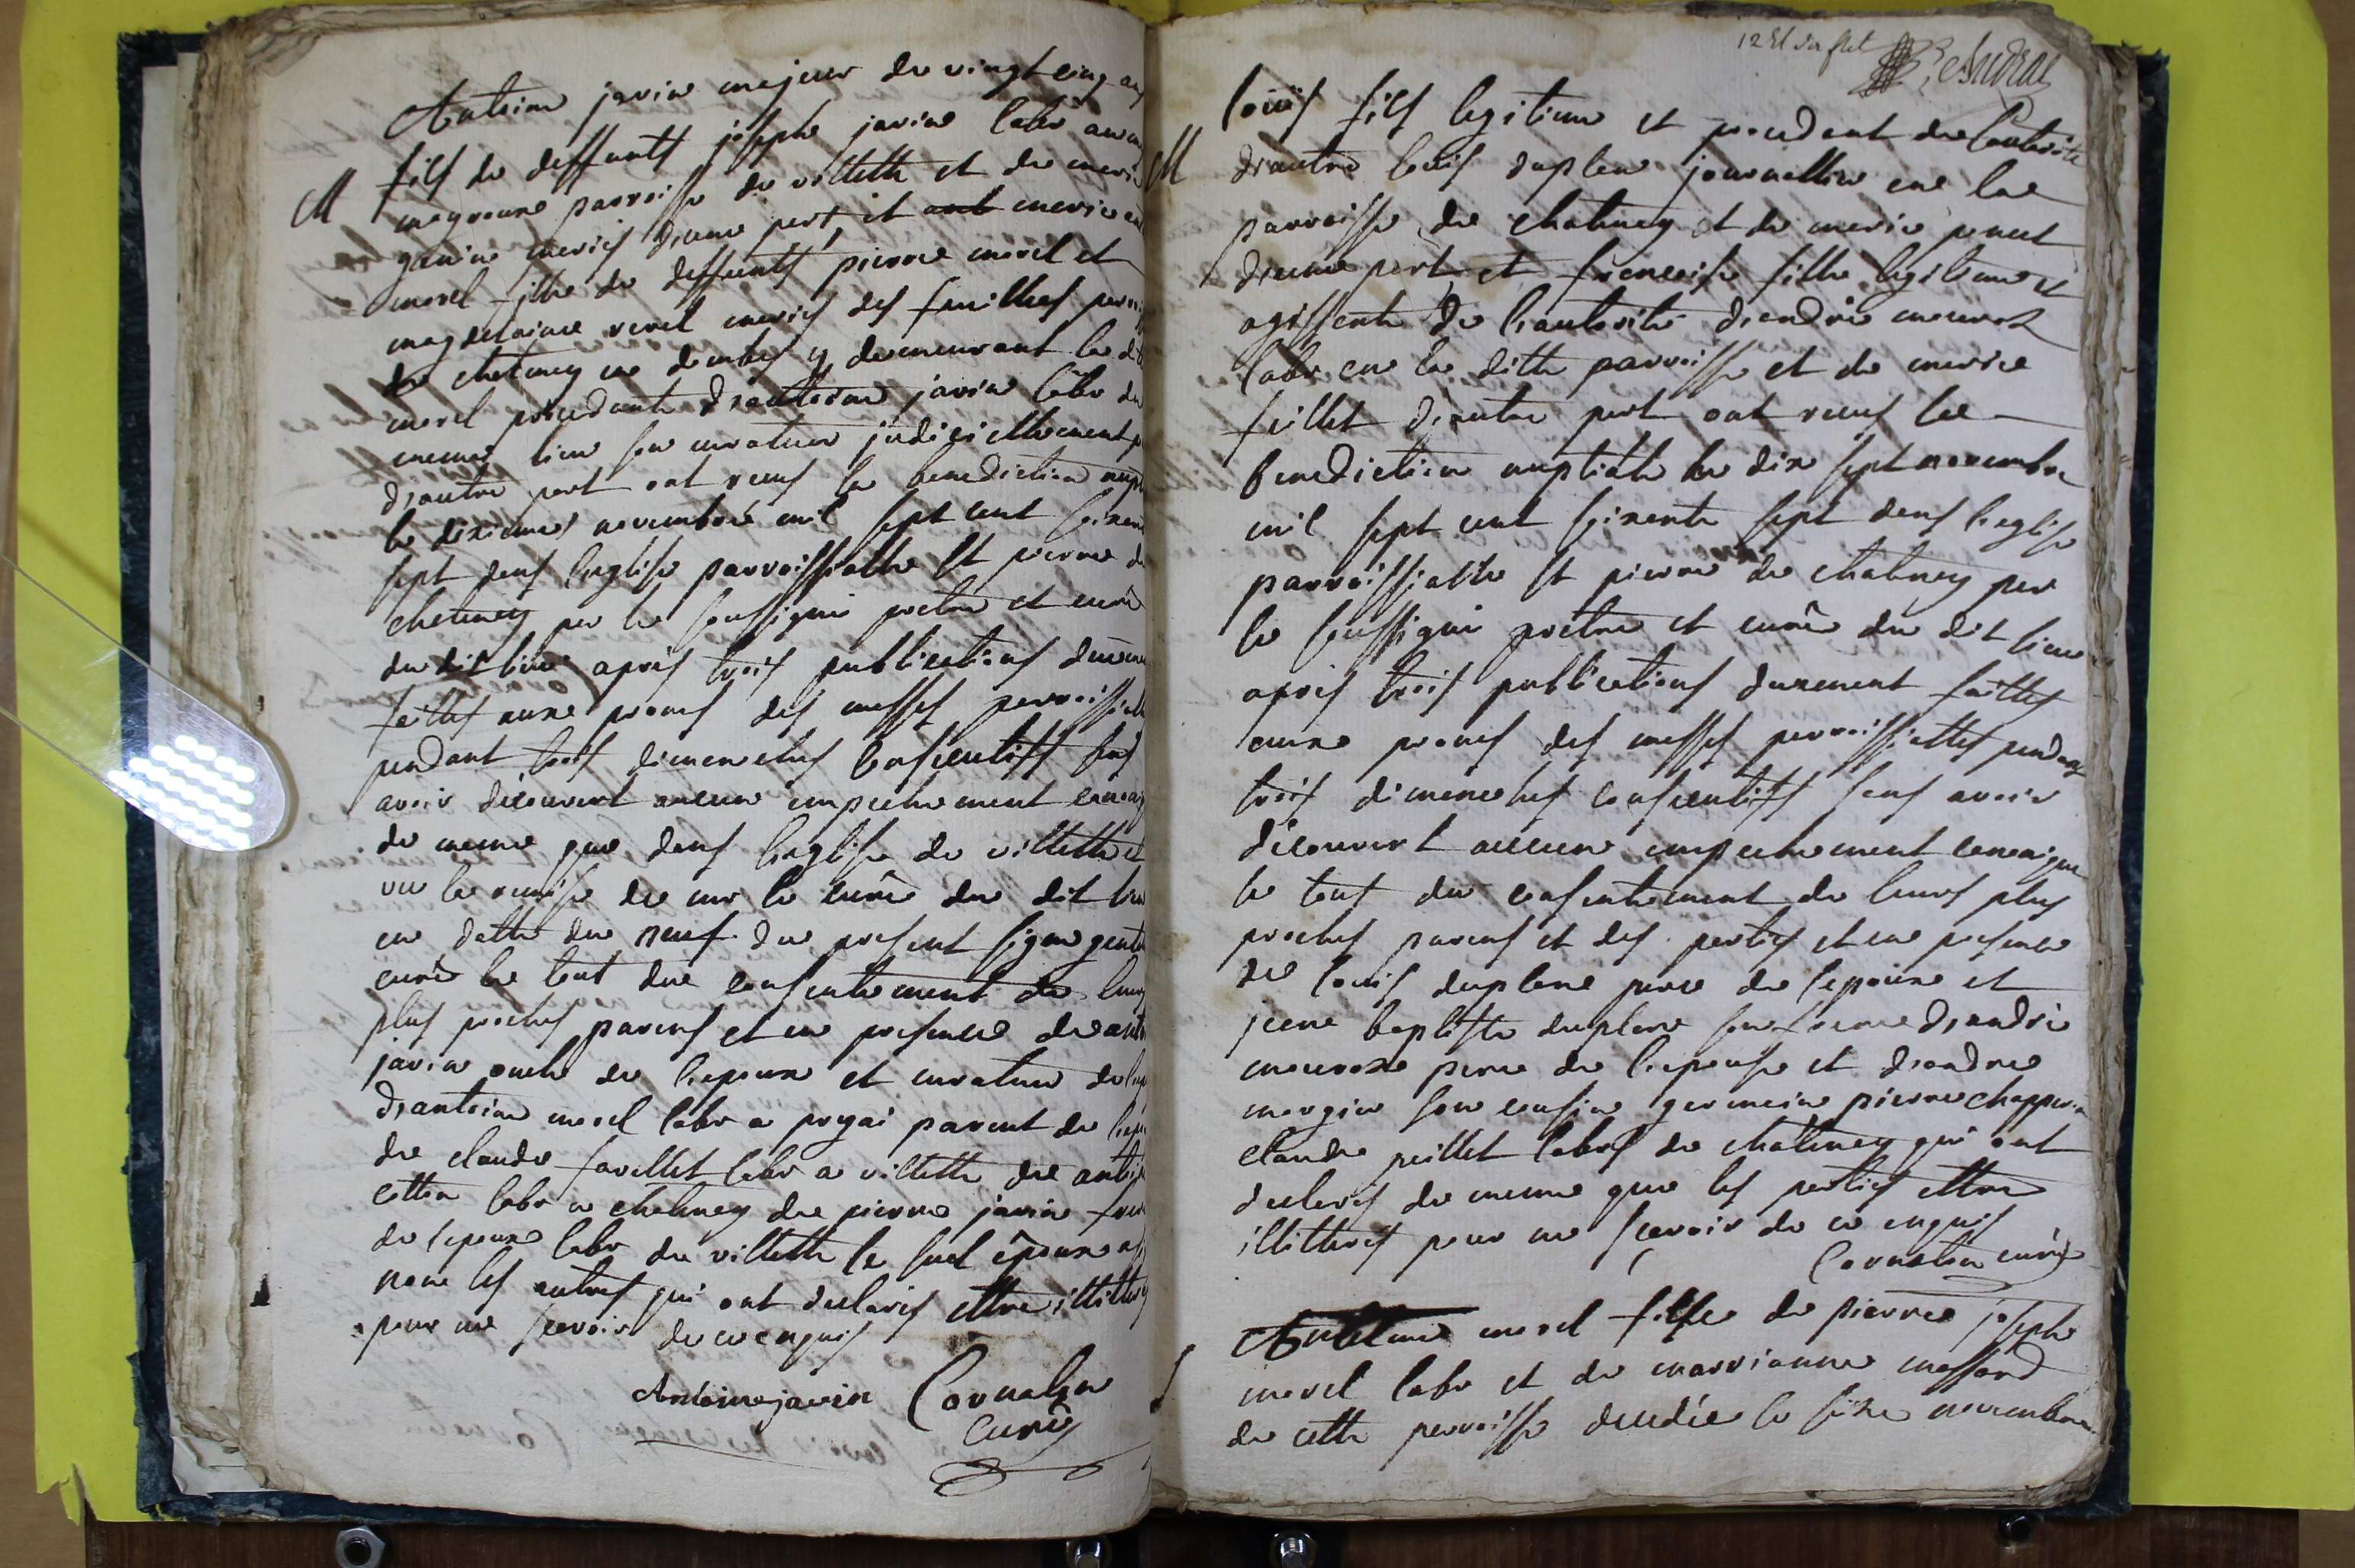 Antoine javin majeur de vingt cinq ans
fils de deffunts josephe javin labr au
M
parroisse de villette et de marie
maries d'eune part, et marie
morel fille de deffunts pierre morel et
magdelaine revel maries des feuilles
de chatenay en dombes y demeurant la dite
morel procedante d'antoine javin labr du
meme lieu son curateur judiciellement
d'autre part ont reçus la benediction
le dixieme novembre mil sept cent
sept dans l'eglise parroissialle St pierre de
chatenay par le soussigné pretre et curé
du dit lieu après trois publications
faittes aux prones des messes
pendant trois dimanches consecutifs sans
avoir découvert aucun empechement
de meme que dans l'eglise de villette et
vu la remise de mr le curé du dit lieu
en datte du neuf du present signé
curé le tout du consentement de leurs
plus proches parens et en presence de
javin oncle de l'epoux et curateur de
d'antoine morel labr a parent de
de claude favellet labr a villette de
cotton labr a chatenay de pierre javin frere
de l'epoux labr de villette le seul époux
non les autres qui ont declarés ettre illitterés
pour ne scavoir de ce enquis
Antoine javin Cornaton
Curé
12
Andral
M
Louïs fils legitime et procedant de l'autorité
d'autre louis duplan journallier en la
parroisse de chatenay et de marie
d'eune part et francoise fille legitime et
agissante de l'autorité d'andrée
labr en la ditte parroisse et de marie
feillet d'autre part ont reçus la
benediction nuptialle le dix sept novembre
mil sept cent soixante sept dans l'eglise
parroissialle St pierre de chatenay par
le soussigné pretre et curé du dit lieu
après trois publications duement faittes
aux prones des messes parroissialles pendant
trois dimanches consecutifs sans avoir
découvert aucun empechement canonique
le tout du consentement de leurs plus
proches parens et des parties et en presence
de louis duplan pere de l'epoux et
jean baptiste duplan son frere d'andré
pere de l'epouse et d'andrée
margin son cousin germain pierre
claude peillet labrs de chatenay qui ont
declarés de meme que les parties ettre
illitterés pour ne scavoir de ce enquis
Cornaton curé
S
morel fille de pierre josephe
morel labr et de marrianne
de cette parroisse decedée le seize novembre